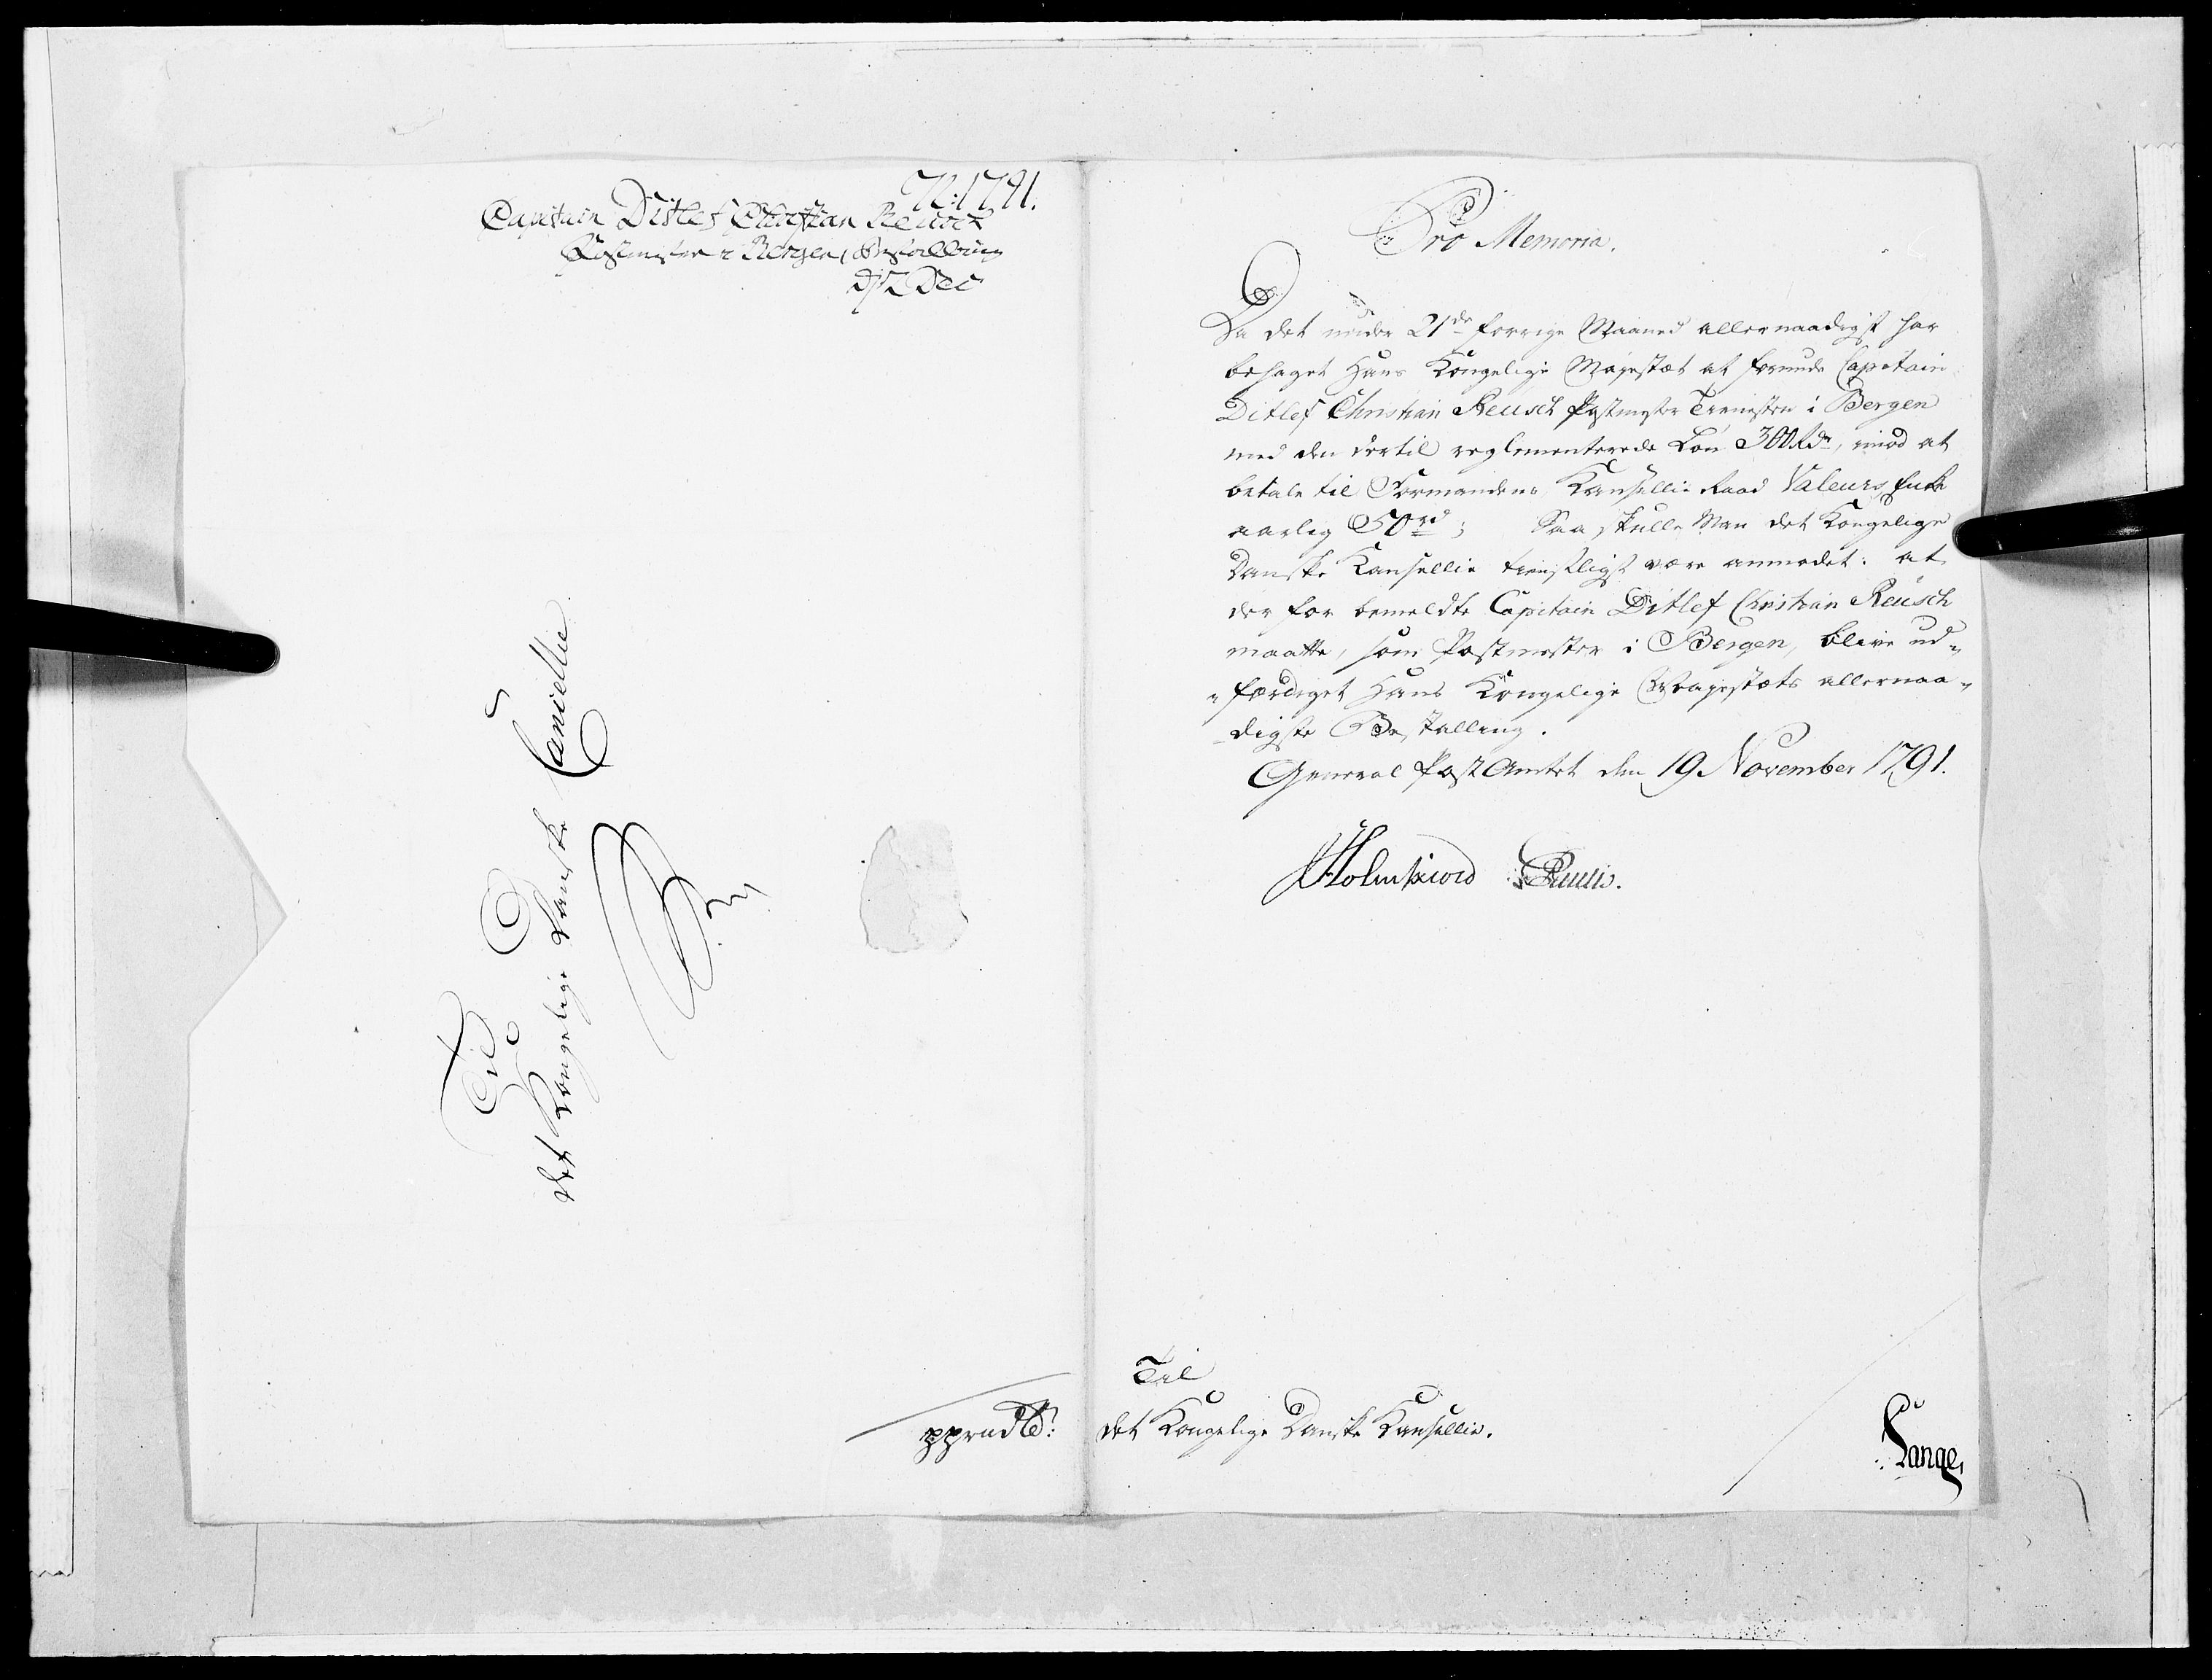 N: 1791.
Capitain Ditlef Christian Reusch
Postmester i Bergen, Bestalling
d/2 Dec
Til
Det Kongelige Danske Cancellie
pprndtb:
Pro Memoria.
Da det under 21de forrige Maaned allernaadigst har
behaget Hans Kongelige Majestæt at forunde Capitain
Ditlef Christian Reusch Postmester Tienesten i Bergen
med den dertil reglementerede Løn 300 Rdr, imod at
betale til Formandens Kansellie Raad Valeurs Enke
aarlig 50 rd; Saa skulle Man det Kongelige
Danske Kansellie tienstligst være anmodet: at
der for bemeldte Capitain Ditlef Christian Reusch
maatte, som Postmester i Bergen, blive ud-
færdiget Hans Kongelige Majestæts allernaa-
digste Bestalling.
General Post Amtet den 19 November 1791.
Holmskiold Paulis.
Til
det Kongelige Danske Kansellie.
Lange,